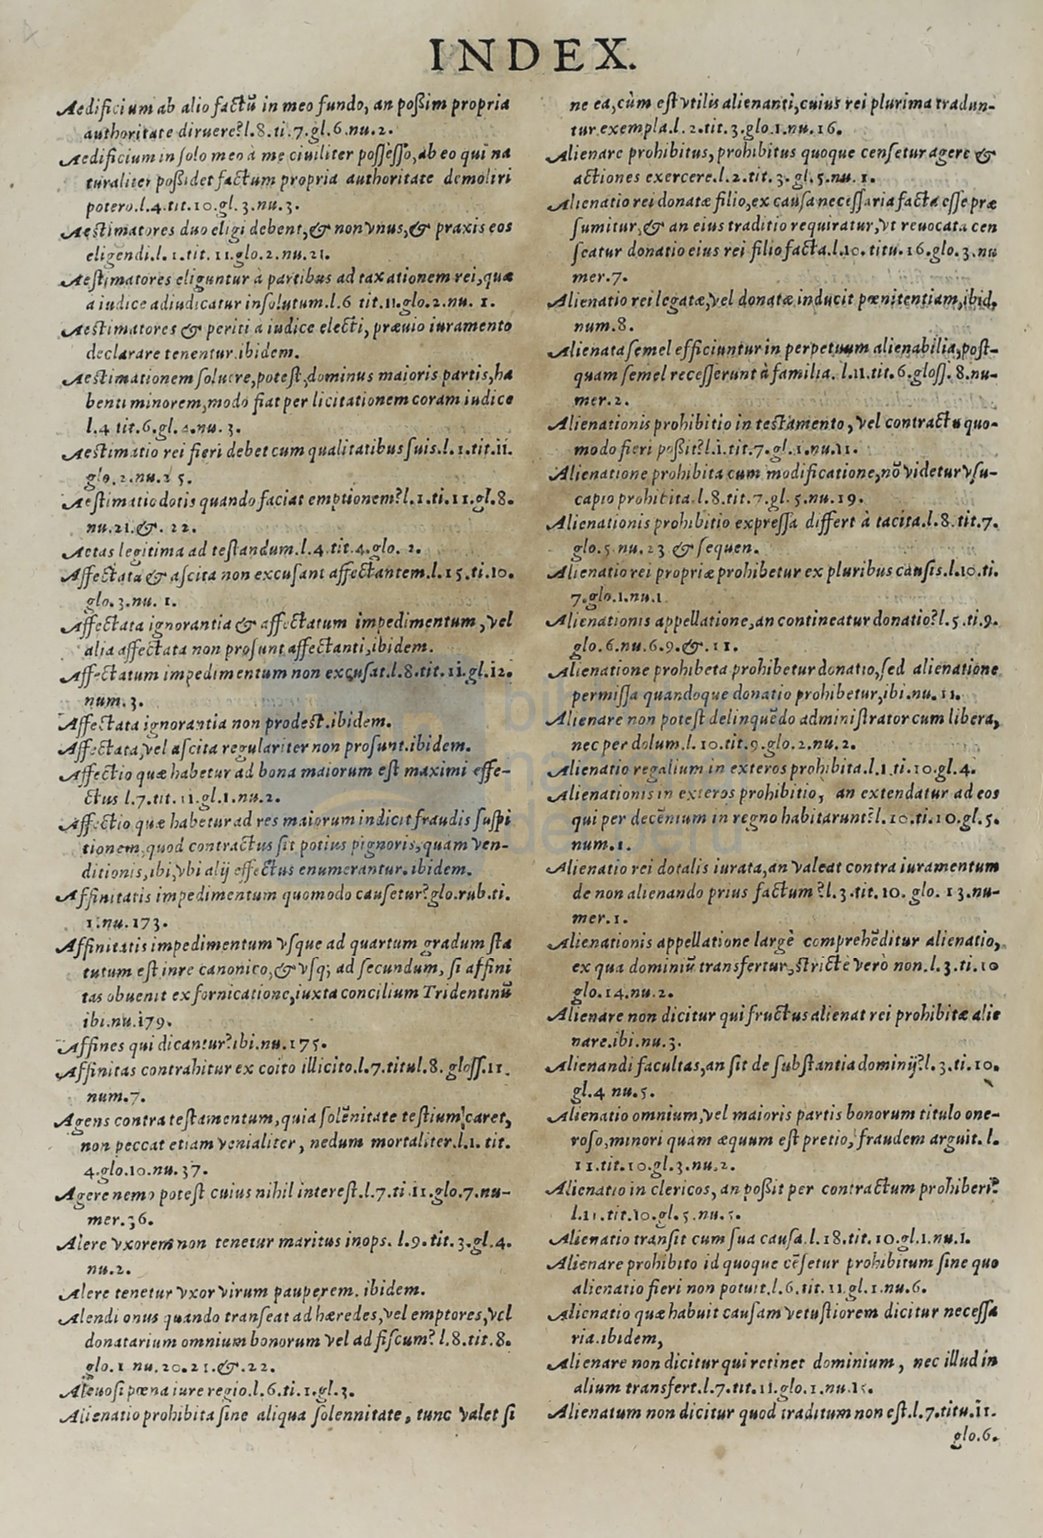 INDEX.
Aedificium ab alio factũ in meo fundo, an poßim propria
authoritate diruere?l.8.ti.7.gl.6.nu.2.
Aedificium in solo meo à me ciuiliter possesso, ab eo qui na
turaliter poßidet factum propria authoritate demoliri
potero.l.4.tit.10.gl.3.nu.3.
Aestimatores duo eligi debent, & non vnus, & praxis eos
eligendi.l.1.tit.11.glo.2.nu.21.
Aestimatores eliguntur à partibus ad taxationem rei, quæ
a iudice adiudicatur insolutum.l.6 tit.11.glo.2.nu.1.
Aestimatores & periti à iudice electi, præuio iuramento
declarare tenentur.ibidem.
Aestimationem soluere, potest, dominus maioris partis, ha
benti minorem, modo fiat per licitationem coram iudice
l.4 tit.6.gl.2.nu.3.
Aestimatio rei fieri debet cum qualitatibus suis.l.1.tit.11.
glo.2.nu.25.
Aestimatio dotis quando faciat emptionem?l.1.ti.11.gl.8.
nu.21.&.22.
Aetas legitima ad testandum.l.4.tit.4.glo.2.
Affectata & ascita non excusant affectantem.l.15.ti.10.
glo.3.nu.1.
Affectata ignorantia & affectatum impedimentum, vel
alia affectata non prosunt affectanti, ibidem.
Affectatum impedimentum non excusat.l.8.tit.11.gl.12.
num.3.
Affectata ignorantia non prodest.ibidem.
Affectata, vel ascita regulariter non prosunt.ibidem.
Affectio quæ habetur ad bona maiorum est maximi effe-
ctus l.7.tit.11.gl.1.nu.2.
Affectio quæ habetur ad res maiorum indicit fraudis suspi
tionem, quod contractus sit potius pignoris, quam ven-
ditionis, ibi, vbi alij effectus enumerantur.ibidem.
Affinitatis impedimentum quomodo causetur?glo.rub.ti.
1.nu.173.
Affinitatis impedimentum vsque ad quartum gradum sta
tutum est inre canonico, & vsq; ad secundum, si affini
tas obuenit ex fornicatione, iuxta concilium Tridentinũ
ibi.nu.179.
Affines qui dicantur?ibi.nu.175.
Affinitas contrahitur ex coito illicito.l.7.titul.8.gloss.11.
num.7.
Agens contra testamentum, quia solẽnitate testium caret,
non peccat etiam venialiter, nedum mortaliter.l.1.tit.
4.glo.10.nu.37.
Agere nemo potest cuius nihil interest.l.7.ti.11.glo.7.nu-
mer.36.
Alere vxorem non tenetur maritus inops. l.9.tit.3.gl.4.
nu.2.
Alere tenetur vxor virum pauperem. ibidem.
Alendi onus quando transeat ad hæredes, vel emptores, vel
donatarium omnium bonorum vel ad fiscum? l.8.tit.8.
glo.1 nu.20.21.&.22.
Aleuosi pœna iure regio.l.6.ti.1.gl.3.
Alienatio prohibita sine aliqua solennitate, tunc valet si
ne ea, cùm est vtilis alienanti, cuius rei plurima tradun-
tur exempla.l.2.tit.3.glo.1.nu.16.
Alienare prohibitus, prohibitus quoque censetur agere &
actiones exercere.l.2.tit.3.gl.5.nu.1.
Alienatio rei donatæ filio, ex causa necessaria facta esse præ
sumitur, & an eius traditio requiratur, vt reuocata cen
seatur donatio eius rei filio facta.l.10.titu.16.glo.3.nu
mer.7.
Alienatio rei legatæ, vel donatæ inducit pœnitentiam, ibid.
num.8.
Alienata semel efficiuntur in perpetuum alienabilia, post-
quam semel recesserunt à familia. l.11.tit.6.gloss.8.nu-
mer.2.
Alienationis prohibitio in testamento, vel contractu quo-
modo fieri poßit?l.1.tit.7.gl.1.nu.11.
Alienatione prohibita cum modificatione, nõ videtur vsu-
capio prohibita.l.8.tit.7.gl.5.nu.19.
Alienationis prohibitio expressa differt à tacita.l.8.tit.7.
glo.5 nu.23 & sequen.
Alienatio rei propriæ prohibetur ex pluribus causis.l.10.ti.
7.glo.1.nu.1
Alienationis appellatione, an contineatur donatio?l.5.ti.9.
glo.6.nu.6.9.&.11.
Alienatione prohibeta prohibetur donatio, sed alienatione
permissa quandoque donatio prohibetur, ibi.nu.11.
Alienare non potest delinquẽdo administrator cum libera,
nec per dolum.l.10.tit.9.glo.2.nu.2.
Alienatio regalium in exteros prohibita.l.1.ti.10.gl.4.
Alienationis in exteros prohibitio, an extendatur ad eos
qui per decẽnium in regno habitarunt?l.10.ti.10.gl.5.
num.1.
Alienatio rei dotalis iurata, an valeat contra iuramentum
de non alienando prius factum?l.3.tit.10.glo.13.nu-
mer.1.
Alienationis appellatione largè comprehẽditur alienatio,
ex qua dominiũ transfertur, strictè verò non.l.3.ti.10
glo.14.nu.2.
Alienare non dicitur qui fructus alienat rei prohibitæ alie
nare.ibi.nu.3.
Alienandi facultas, an sit de substantia dominij?l.3.ti.10.
gl.4 nu.5.
Alienatio omnium, vel maioris partis bonorum titulo one-
roso, minori quàm æquum est pretio, fraudem arguit. l.
11.tit.10.gl.3.nu.2.
Alienatio in clericos, an poßit per contractum prohiberi?
l.11.tit.10.gl.5.nu.5.
Alienatio transit cum sua causa.l.18.tit.10.gl.1.nu.1.
Alienare prohibito id quoque cẽsetur prohibitum sine quo
alienatio fieri non potuit.l.6.tit.11.gl.1.nu.6.
Alienatio quæ habuit causam vetustiorem dicitur necessa
ria.ibidem,
Alienare non dicitur qui retinet dominium, nec illud in
alium transfert.l.7.tit.11.glo.1.nu.15.
Alienatum non dicitur quod traditum non est.l.7.titu.11.
glo.6.